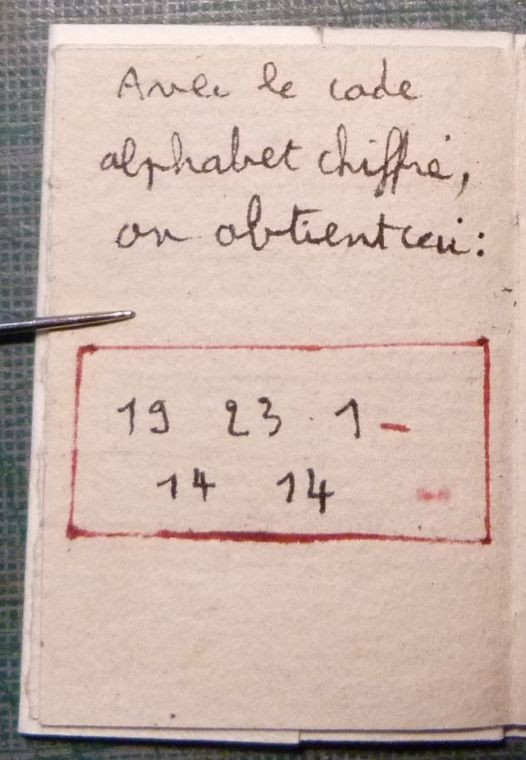 Avec le code
alphabet chiffré,
on obtient ceci:
19 23 1-
14 14